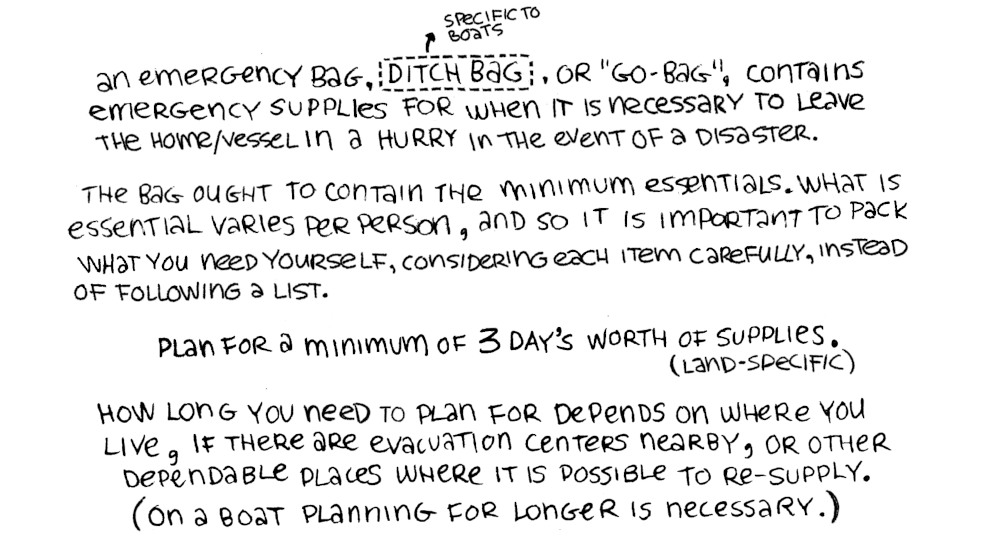 SPECIFIC TO
BOATS
an emergency bag, DITCH BAG, OR "GO-BAG", contains
emergency supplies for when it is necessary to leave
the home/vessel in a hurry in the event of a disaster.
The bag ought to contain the minimum essentials. What is
essential varies per person, and so it is important to pack
what you need yourself, considering each item carefully, instead
of following a list.
Plan for a minimum of 3 day's worth of supplies.
(land-specific)
How long you need to plan for depends on where you
live, if there are evacuation centers nearby, or other
dependable places where it is possible to re-supply.
(on a boat planning for longer is necessary.)